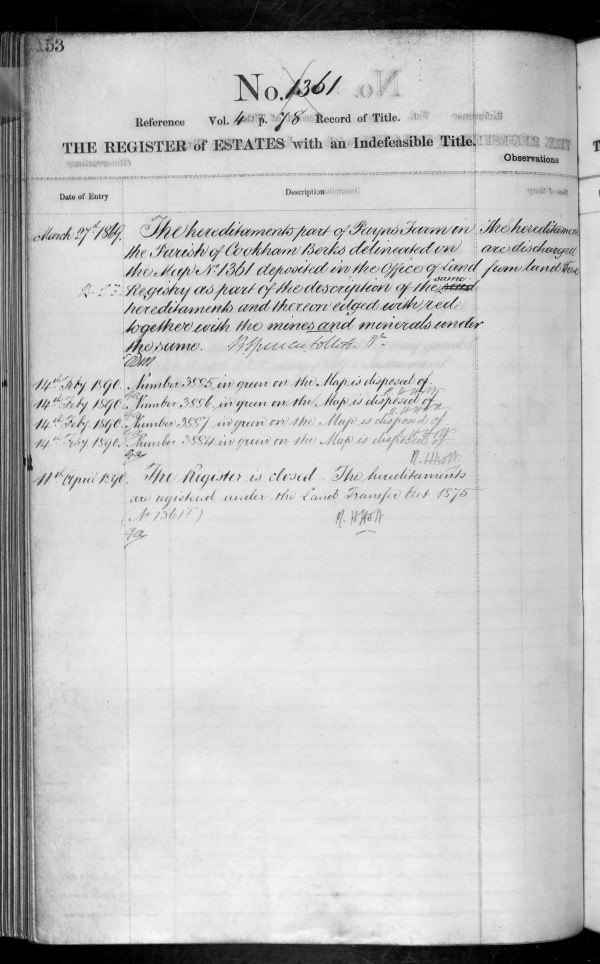 53
No. 1361
Reference Vol. 4 p. 78 Record of Title.
THE REGISTER of ESTATES with an Indefeasible Title.
Observations
Date of Entry
Description
March 27th 1869. The hereditaments part of Payns Farm in
the Parish of Cookham Berks delineated on
the Map No 1361 deposited in the Office of Land
Registry as part of the description of the same
hereditaments and thereon edged with red
together with the mines and minerals under
the same.
The hereditaments
are discharged
from land Tax
14th Feby 1890. Number 3885, in green on the Map is disposed of.
14th Feby 1890. Number 3886, in green on the Map is disposed of
14th Feby 1890. Number 3887 in green on the Map is disposed of
14th Feby 1890. Number 3884 in green on the Map is disposed of
R. H. Holt
11th April 1890. The Register is closed. The hereditaments
are registered under the Land Transfer Act 1875
(No 1361)
R. H. Holt